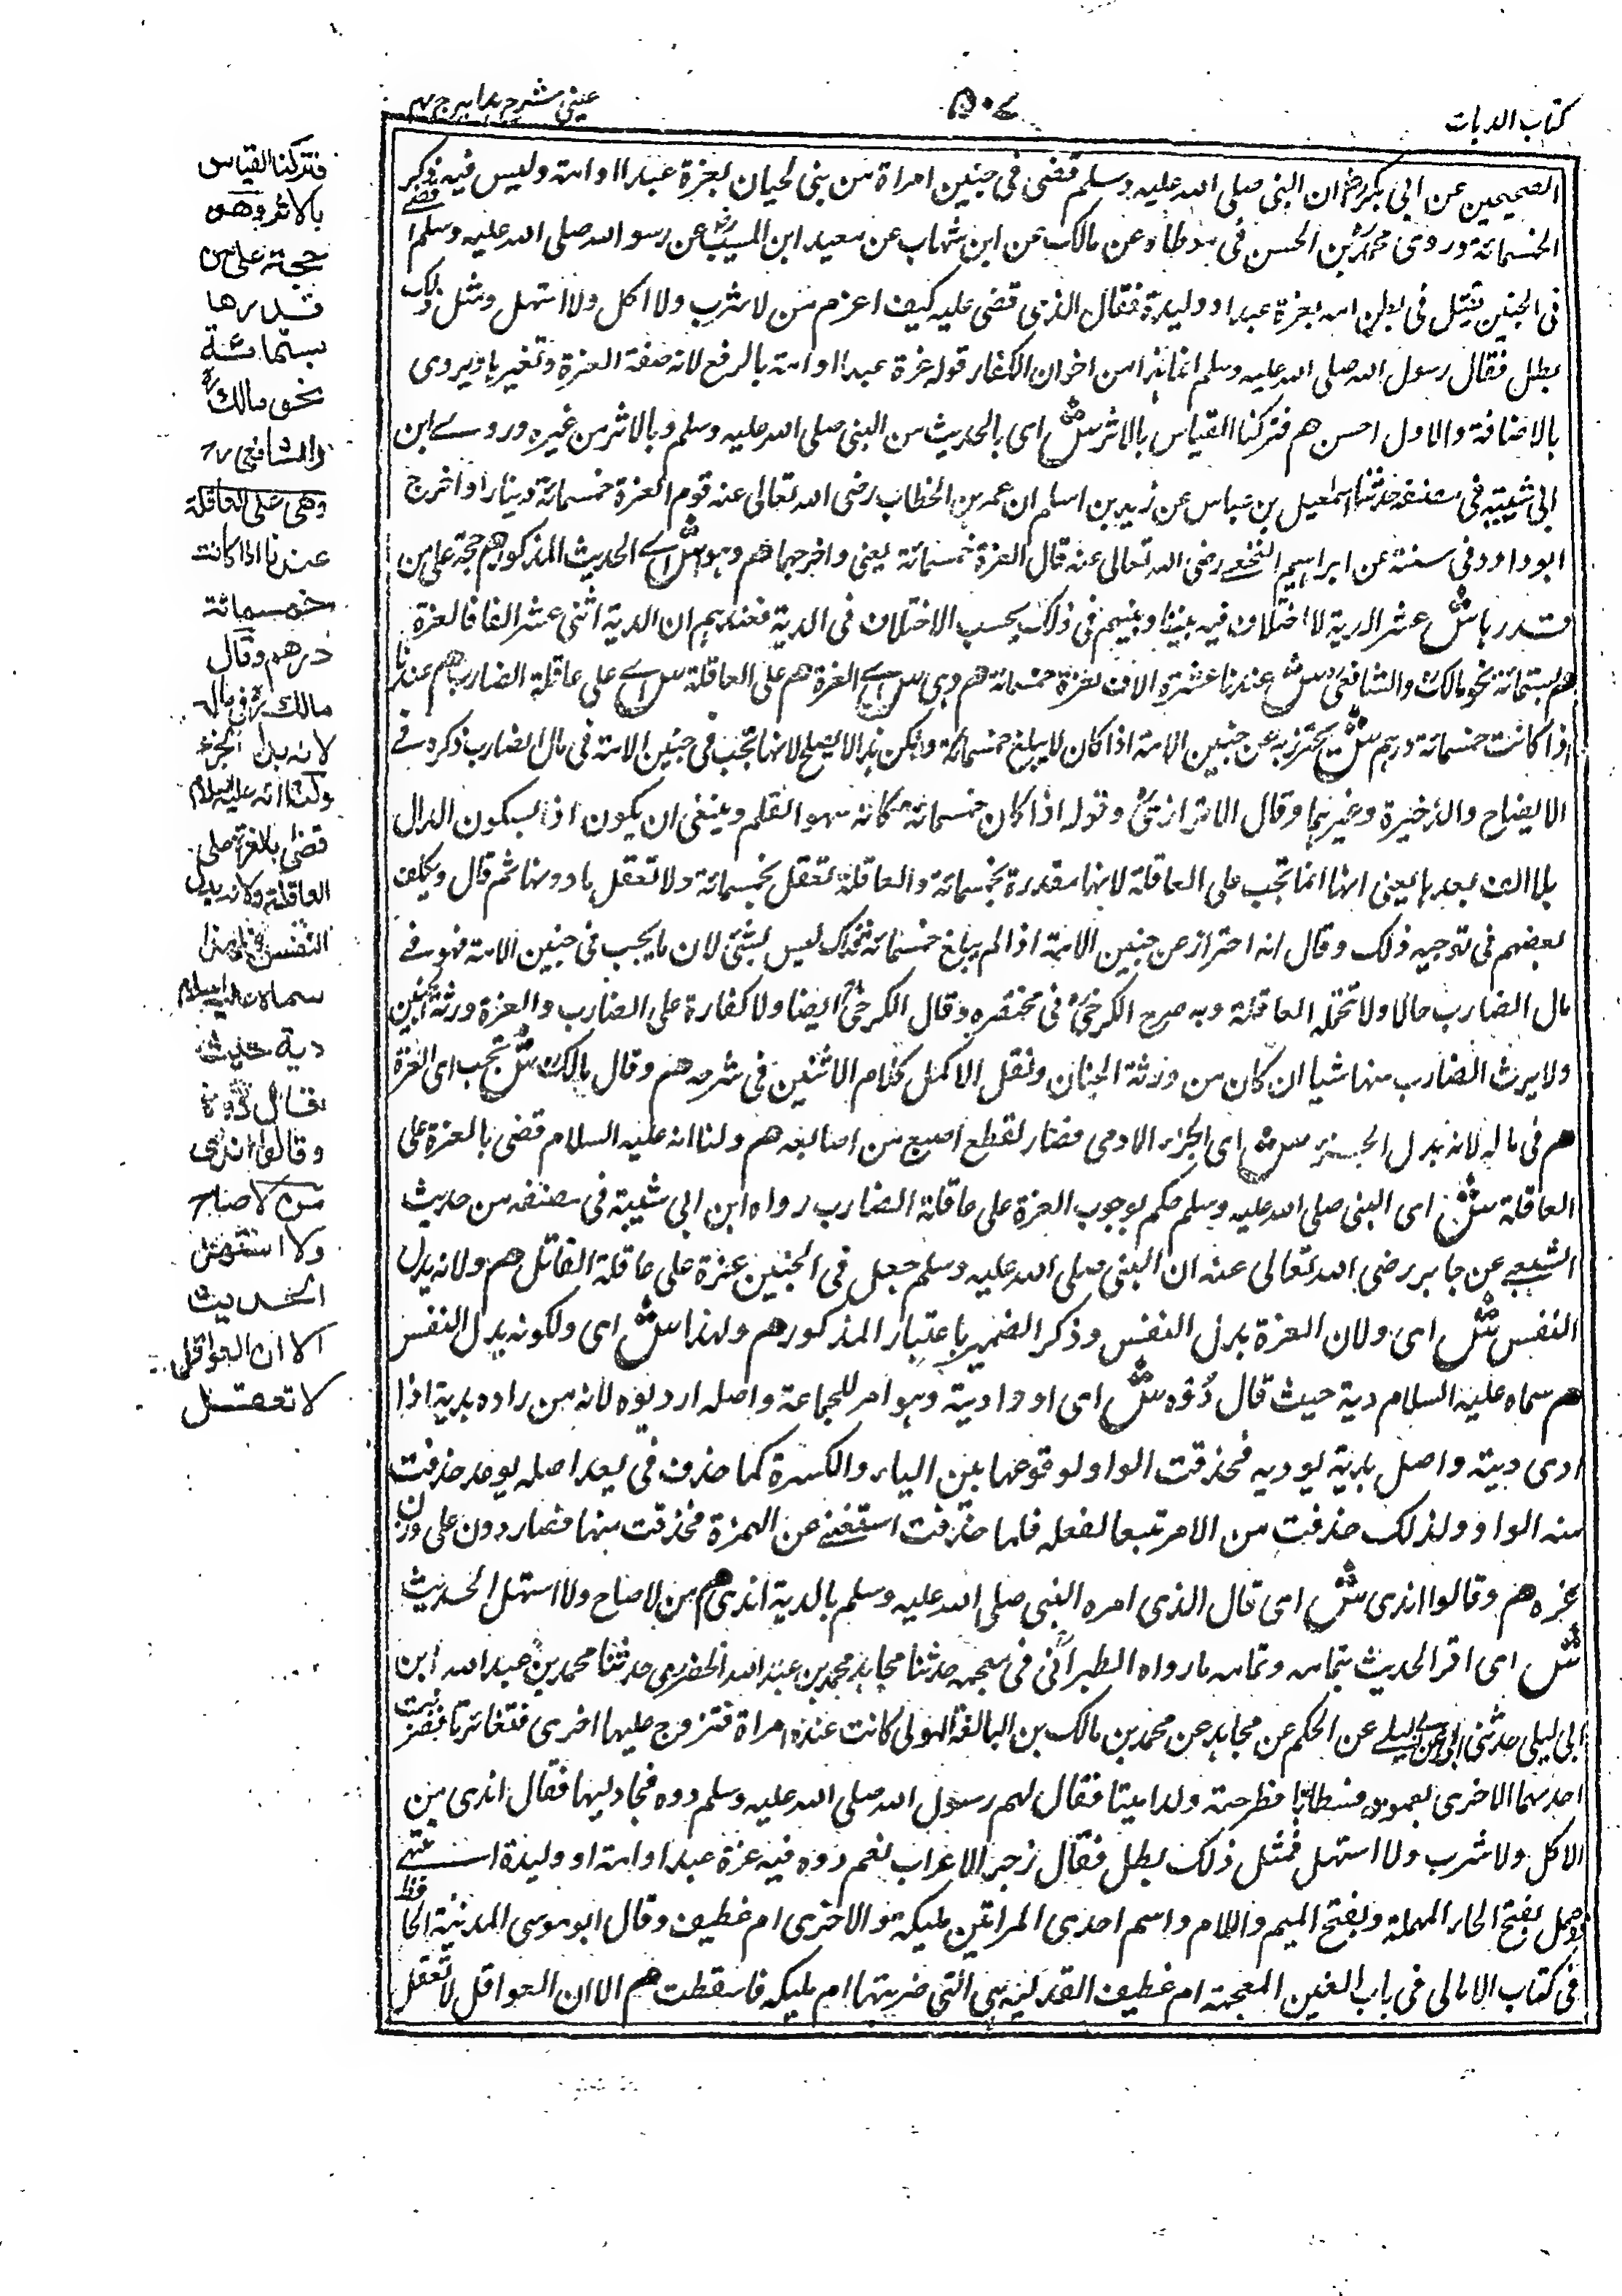 كتاب الديات
٥٠٤
عيني شرح هدايه ج ٤
الصحيحين عن ابي بكر رض ان النبي صلى الله عليه وسلم قضى في جنين امراة من بني لحيان بغرة عبد او امة وليس فيه ذكر
الخمسمائة وروى محمد بن الحسن في موطاه عن مالك عن ابن شهاب عن سعيد ابن المسيب عن رسول الله صلى الله عليه وسلم قضى
في الجنين يقتل في بطن امه بغرة عبد او وليدة فقال الذي قضى عليه كيف اغرم من لا شرب ولا اكل ولا استهل ومثل ذلك
بطل فقال رسول الله صلى الله عليه وسلم انما هذا من اخوان الكفار قوله غرة عبد او امة بالرفع لانه صفة الغرة وتفسير ها ويروى
بالاضافة والاول احسن هم فتركنا القياس بالاثر ش اى بالحديث من النبي صلى الله عليه وسلم وبالاثر من غيره وروى ابن
ابي شيبة في مصنفه حدثنا اسمعيل بن عباس عن زيد بن اسلم ان عمر بن الخطاب رضى الله تعالى عنه قوم الغرة خمسمائة دينار او اخرج
ابو داود في سننه عن ابراهيم النخعي رضى الله تعالى عنه قال الغرة خمسمائة يعنى واخرجهما هم وهو ش اى الحديث المذكور هم حجة على من
قدرها ش عشر الدية لا اختلاف فيه بيننا وبينهم في ذلك بحسب الاختلاف في الدية فعندهم ان الدية اثنى عشر الفا فالغرة
هم بستمائة نحو مالك والشافعي ش عندنا عشرة الاف بغرة خمسمائة هم وهي ش اى الغرة هم على العاقلة ش اى على عاقلة الضارب هم عندنا
اذا كانت خمسمائة درهم ش يحترز به عن جنين الامة اذا كان لا يبلغ خمسمائة ولكن هذا لا يصلح لانها تجب في جنين الامة في مال الضارب ذكره في
الايضاح والذخيرة وغيرهما وقال الاترازي وقوله اذا كان خمسمائة كانه سهو القلم وينبغي ان يكون اذ بسكون الذال
بلا الف بعدها يعنى انها انما تجب على العاقلة لانها مقدرة بخمسمائة والعاقلة تعقل بخمسمائة ولا تعقل ما دونها ثم قال وتكلف
بعضهم في توجيه ذلك وقال انه احتراز عن جنين الامة اذا لم يبلغ خمسمائة فذاك ليس بشئ لان ما يجب في جنين الامة فهو في
مال الضارب حالا ولا تحمله العاقلة وبه صرح الكرخي في مختصره وقال الكرخي ايضا ولا كفارة على الضارب والغرة ورثة الجنين
ولا يرث الضارب منها شيا ان كان من ورثة الجنان ونقل الاكمل كلام الاثنين في شرحه هم وقال مالك ش تجب اى الغرة
هم في ماله لانه بدل الجزء ش اى الجزء الادمي فصار لقطع اصبع من اصابعه هم ولنا انه عليه السلام قضى بالغرة على
العاقلة ش اى النبي صلى الله عليه وسلم حكم بوجوب الغرة على عاقلة الضارب رواه ابن ابي شيبة في مصنفه من حديث
الشعبي عن جابر رضى الله تعالى عنه ان النبي صلى الله عليه وسلم جعل في الجنين غرة على عاقلة القاتل هم ولانه بدل
النفس ش اى ولان الغرة بدل النفس وذكر الضمير باعتبار المذكور هم ولهذا ش اى ولكونه بدل النفس
هم سماه عليه السلام دية حيث قال دُوه ش اى اودا دية وهو امر للجماعة واصله اردلوه لانه من راده بدية اذا
ادى دية واصل بدية يوديه فحذفت الواو لوقوعها بين الياء والكسرة كما حذف في يعد اصله يوعد حذفت
منه الواو ولذلك حذفت من الامر تبعا لفعله فلما حذفت استغنى عن الهمزة فحذفت منها فصار دون على وزن
غره هم وقالوا اندى ش اى قال الذي امره النبي صلى الله عليه وسلم بالدية اندى هم من لا صاح ولا استهل الحديث
ش اى اقر الحديث بتمامه وتمامه ما رواه الطبراني في معجمه حدثنا مجاهد محمد بن عبد الله الحضرمي حدثنا محمد بن عبد الله ابن
ابي ليلى حدثني ابي عن ابي ليلى عن الحكم عن مجاهد عن محمد بن مالك بن البالغة الهولى كانت عنده امراة فتزوج عليها اخرى فتغائرتا فضربت
احدهما الاخرى بعمود فسطاط فطرحت ولدا ميتا فقال لهم رسول الله صلى الله عليه وسلم دوه فجاد ليها فقال اندى من
لا اكل ولا شرب ولا استهل فمثل ذلك بطل فقال زجر الاعراب نعم دوه فيه غرة عبد او امة او وليدة انتهى
وحمل بفتح الحاء المهملة وبفتح الميم واللام واسم احدى المراتين مليكة والاخرى ام غطيف وقال ابو موسى المدينة الحافظ
في كتاب الامالي في باب الغين المعجمة ام غطيف القدلية هي التي ضربتها ام مليكه فاسقطت هم الا ان العواقل لا تعقل
فتركنا القياس
بالاثر وهو
حجة على من
قدرها
بستمائة
نحو مالك
والشافعي
وهى على العاقلة
عندنا اذا كانت
خمسمائة
درهم وقال
مالك في ماله
لانه بدل الجزء
ولنا انه عليه السلام
قضى بالغرة على
العاقلة ولانه بدل
النفس ولهذا
سماه عليه السلام
دية حيث
قال دوه
وقالوا اندى
من لا صاح
ولا استهل
الحديث
الا ان العواقل
لا تعقل